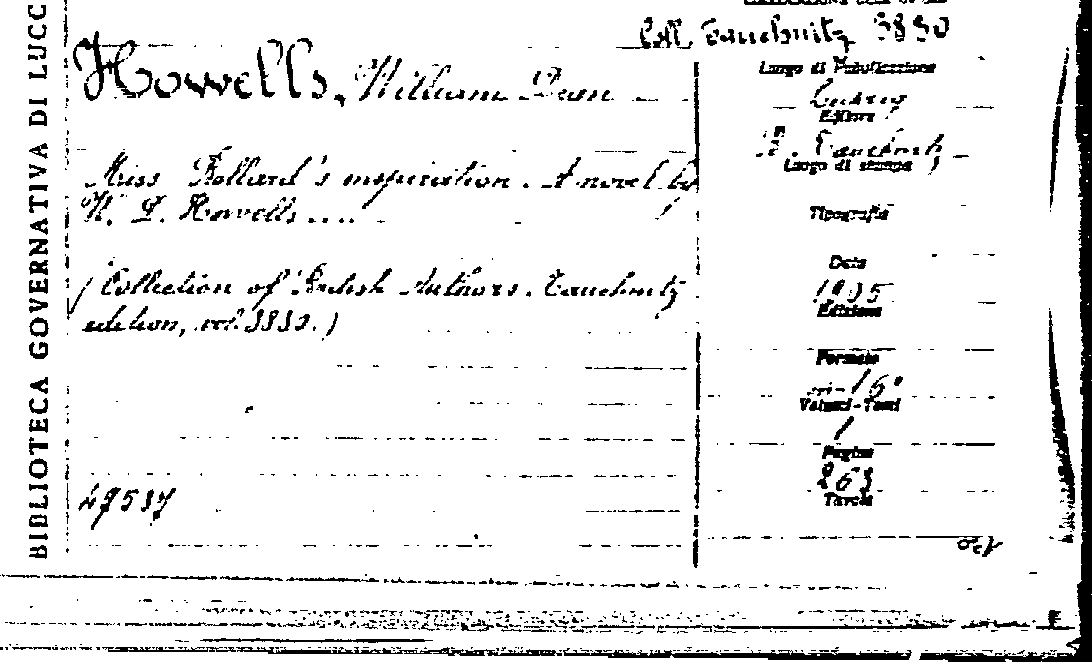 BIBLIOTECA GOVERNATIVA DI LUCC
Coll. Tauchnitz 3830
Howells, William Dean
Luogo di Pubblicazione
Editore
B. Tauchnitz
Luogo di stampa
Miss Bellard's inspiration. A novel by
W. D. Howells ....
Tipografia
Data
1905
Edizione
(Collection of British Authors. Tauchnitz
edition, vol. 3830.)
Formato
in-16°
Volumi-Tomi
1
Pagine
263
Tavole